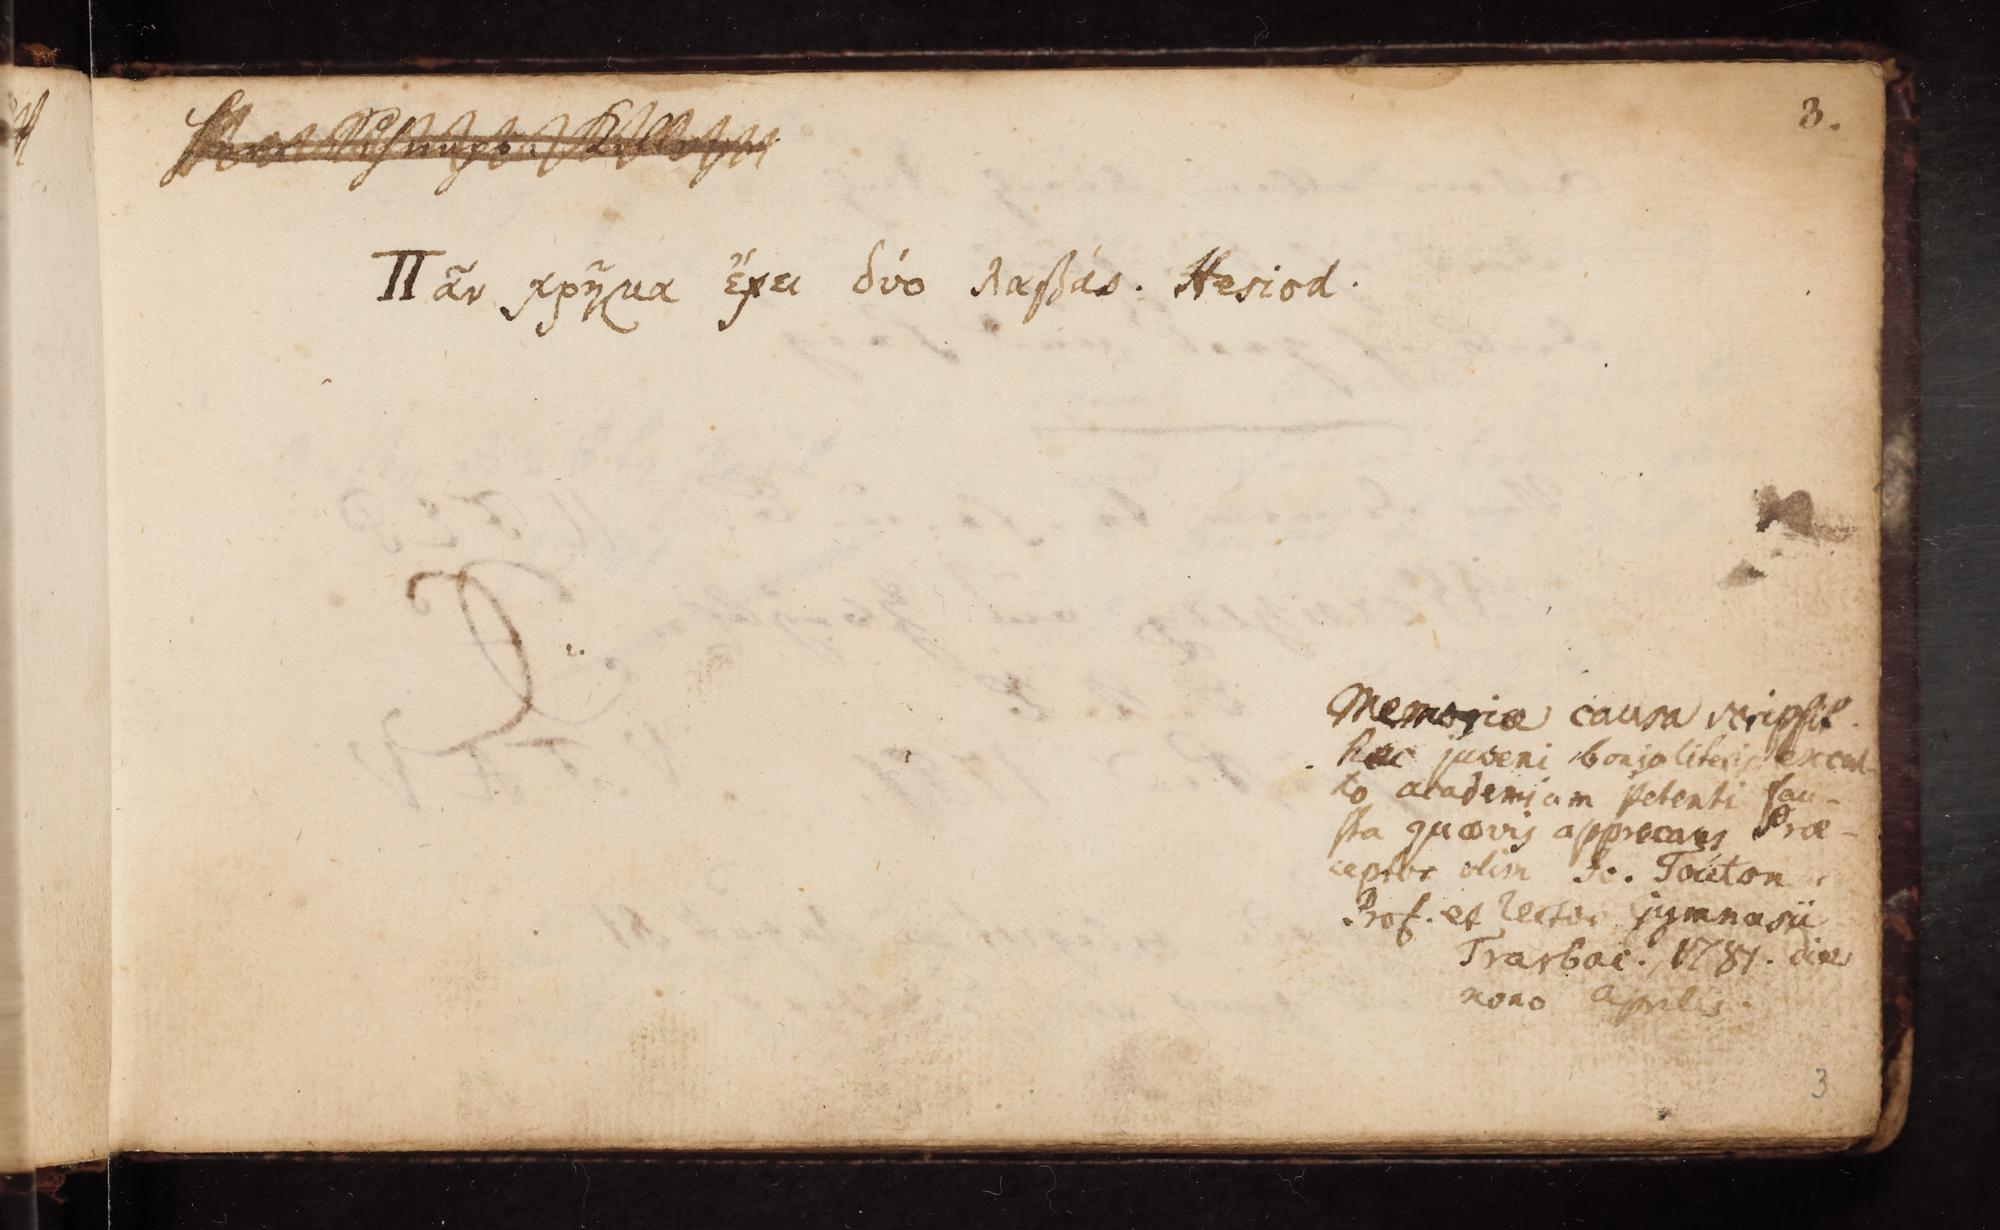 3.
Πᾶν χρῆμα ἔχει δύο λαβάς. Hesiod.
Memoriæ causa scripsit
hæc juveni bonis literis excul-
to academiam petenti fau-
sta quævis apprecans Præ-
ceptor olim Fr. Touton
Prof. et Rector gymnasii
Trarbac. 1781. die
nono Aprilis.
3